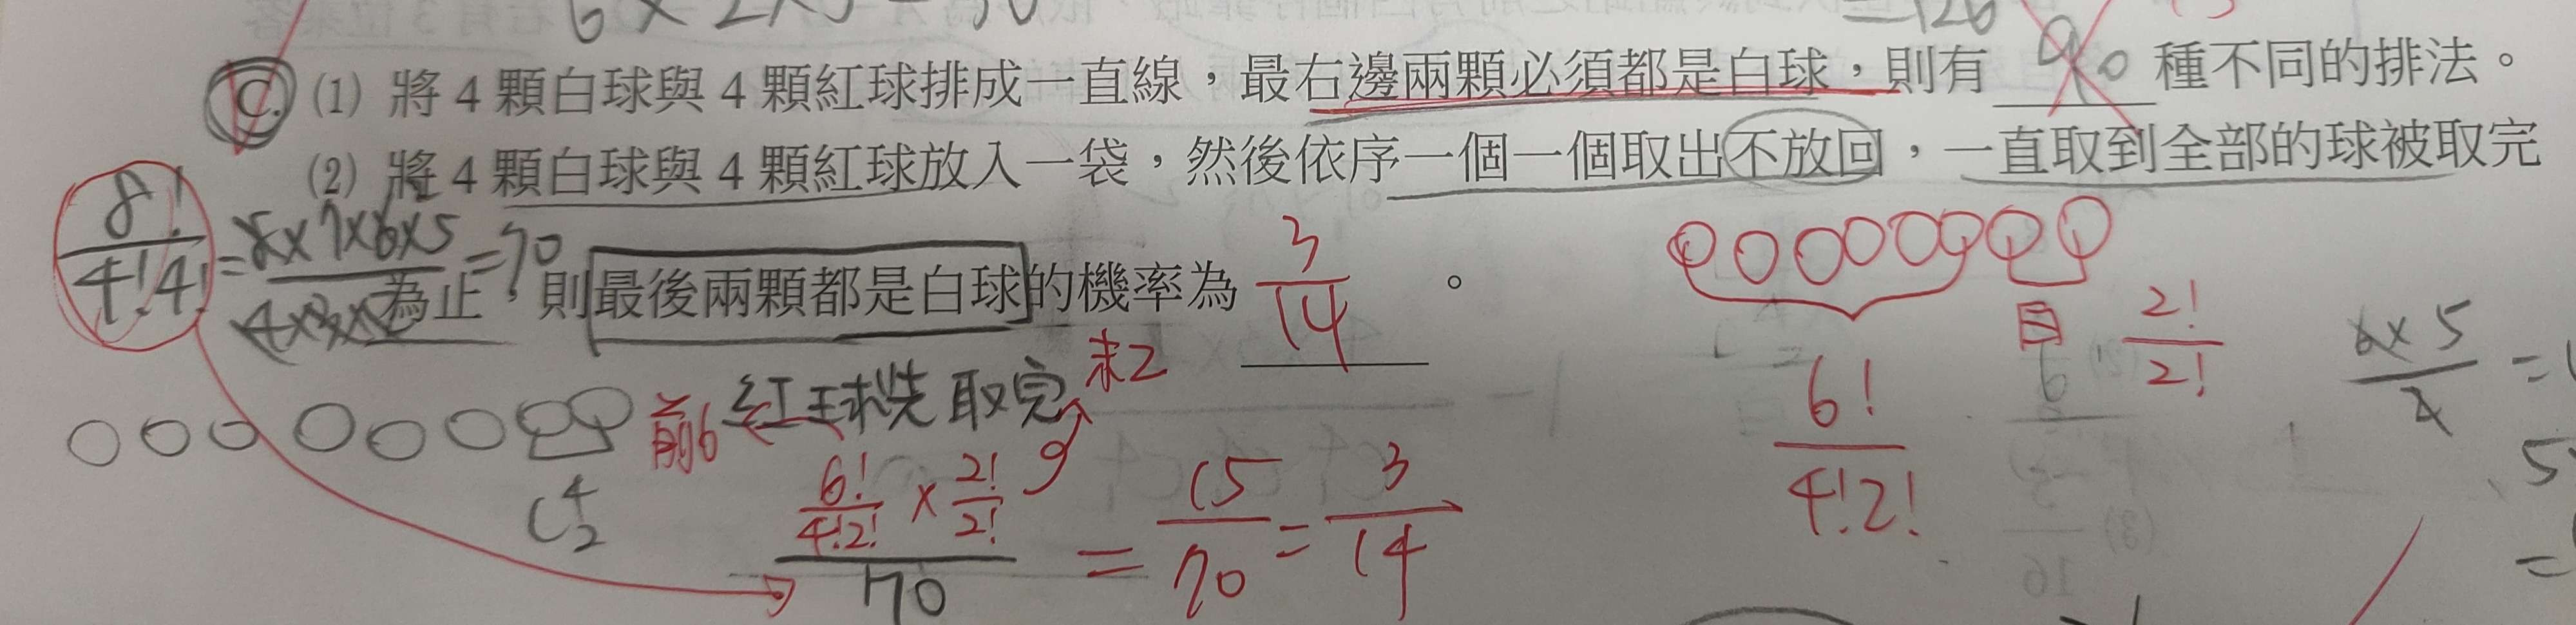 6×2×
=126
C. (1) 將 4 顆白球與 4 顆紅球排成一直線，最右邊兩顆必須都是白球，則有 90 種不同的排法。
(2) 將 4 顆白球與 4 顆紅球放入一袋，然後依序一個一個取出不放回，一直取到全部的球被取完
為止，則最後兩顆都是白球的機率為 3/14 。
8!/4!4! = 8×7×6×5/4×3×2 = 70
白 2!/2!
6!/4!2!
6×5/2 =
前6 紅球先取完 末2
C⁴₂
6!/4!2! × 2!/2! / 70 = 15/70 = 3/14